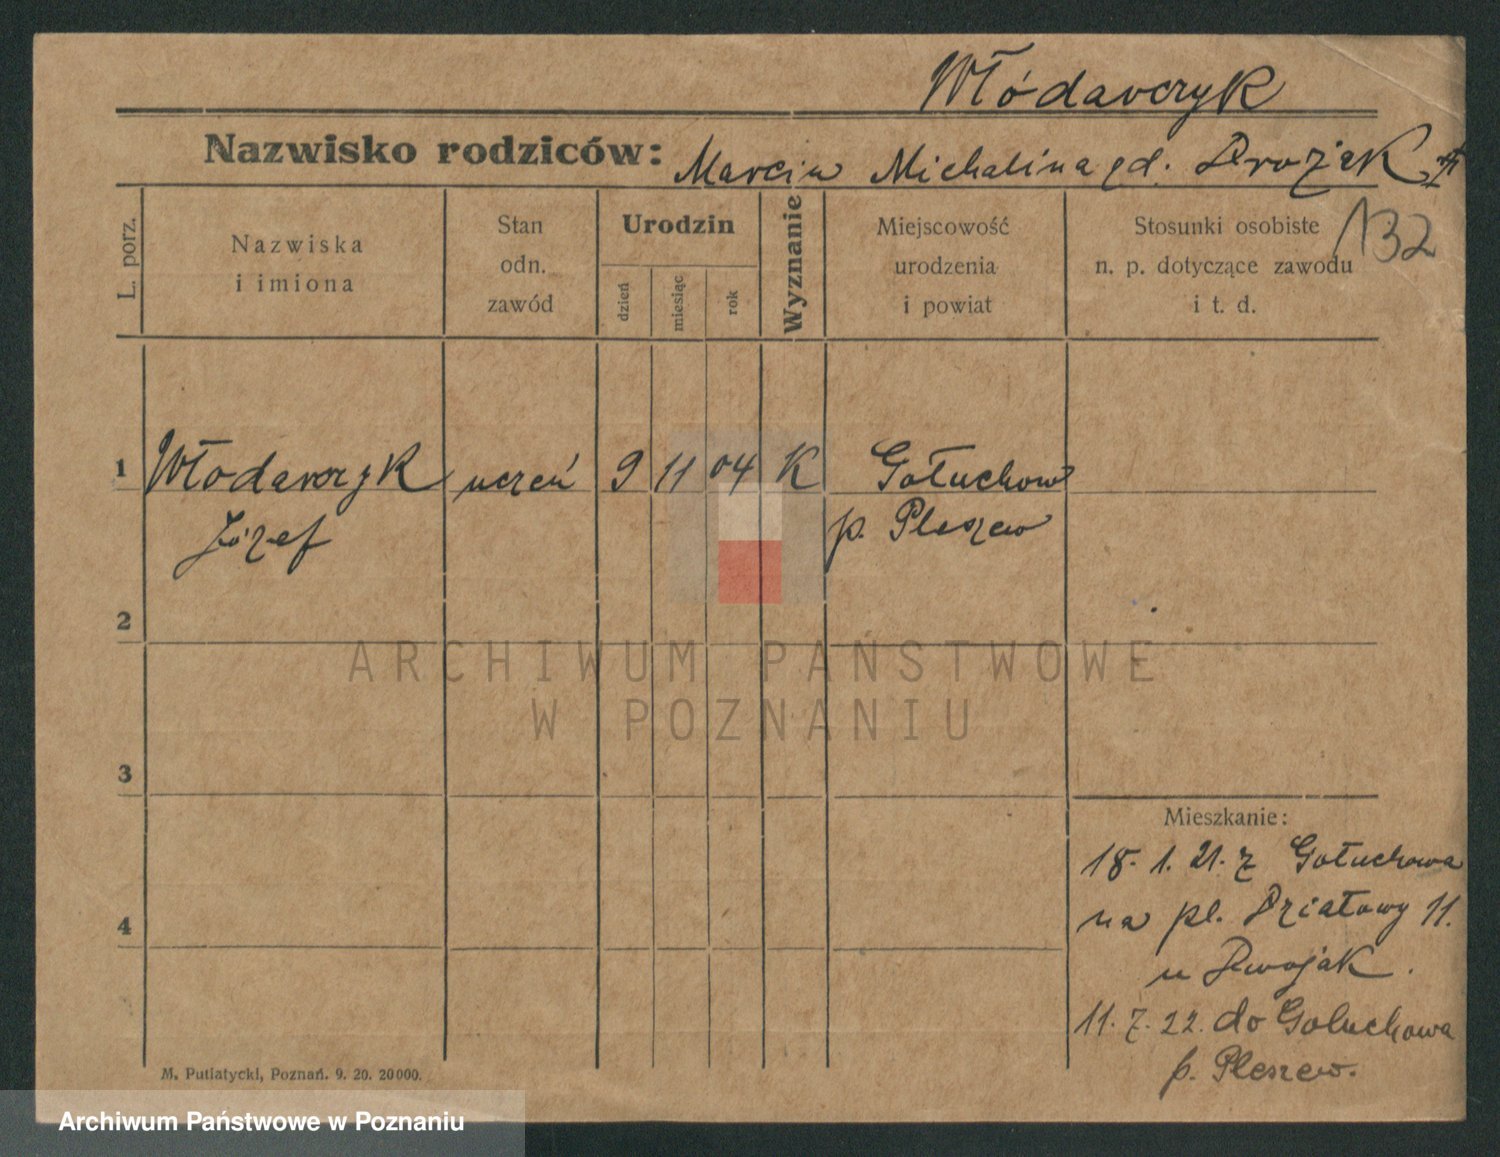 Włódarczyk
Nazwisko rodziców: Marcin Michalina zd.
132
L. porz.
Nazwiska
i imiona
Stan
odn.
zawód
Urodzin
dzień
miesiąc
rok
Wyznanie
Miejscowość
urodzenia
i powiat
Stosunki osobiste
n. p. dotyczące zawodu
i t. d.
1 Włodarczyk uczeń 9 11 04 K Gołuchow
Józef p. Pleszew
2
3
4
ARCHIWUM PAŃSTWOWE
W POZNANIU
Mieszkanie:
18. 1. 21. z Gołuchowa
na pl. Działowy 11.
u Dwojak.
11. 7. 22. do Goluchowa
p. Pleszew.
M. Putiatycki, Poznań. 9. 20. 20000.
Archiwum Państwowe w Poznaniu